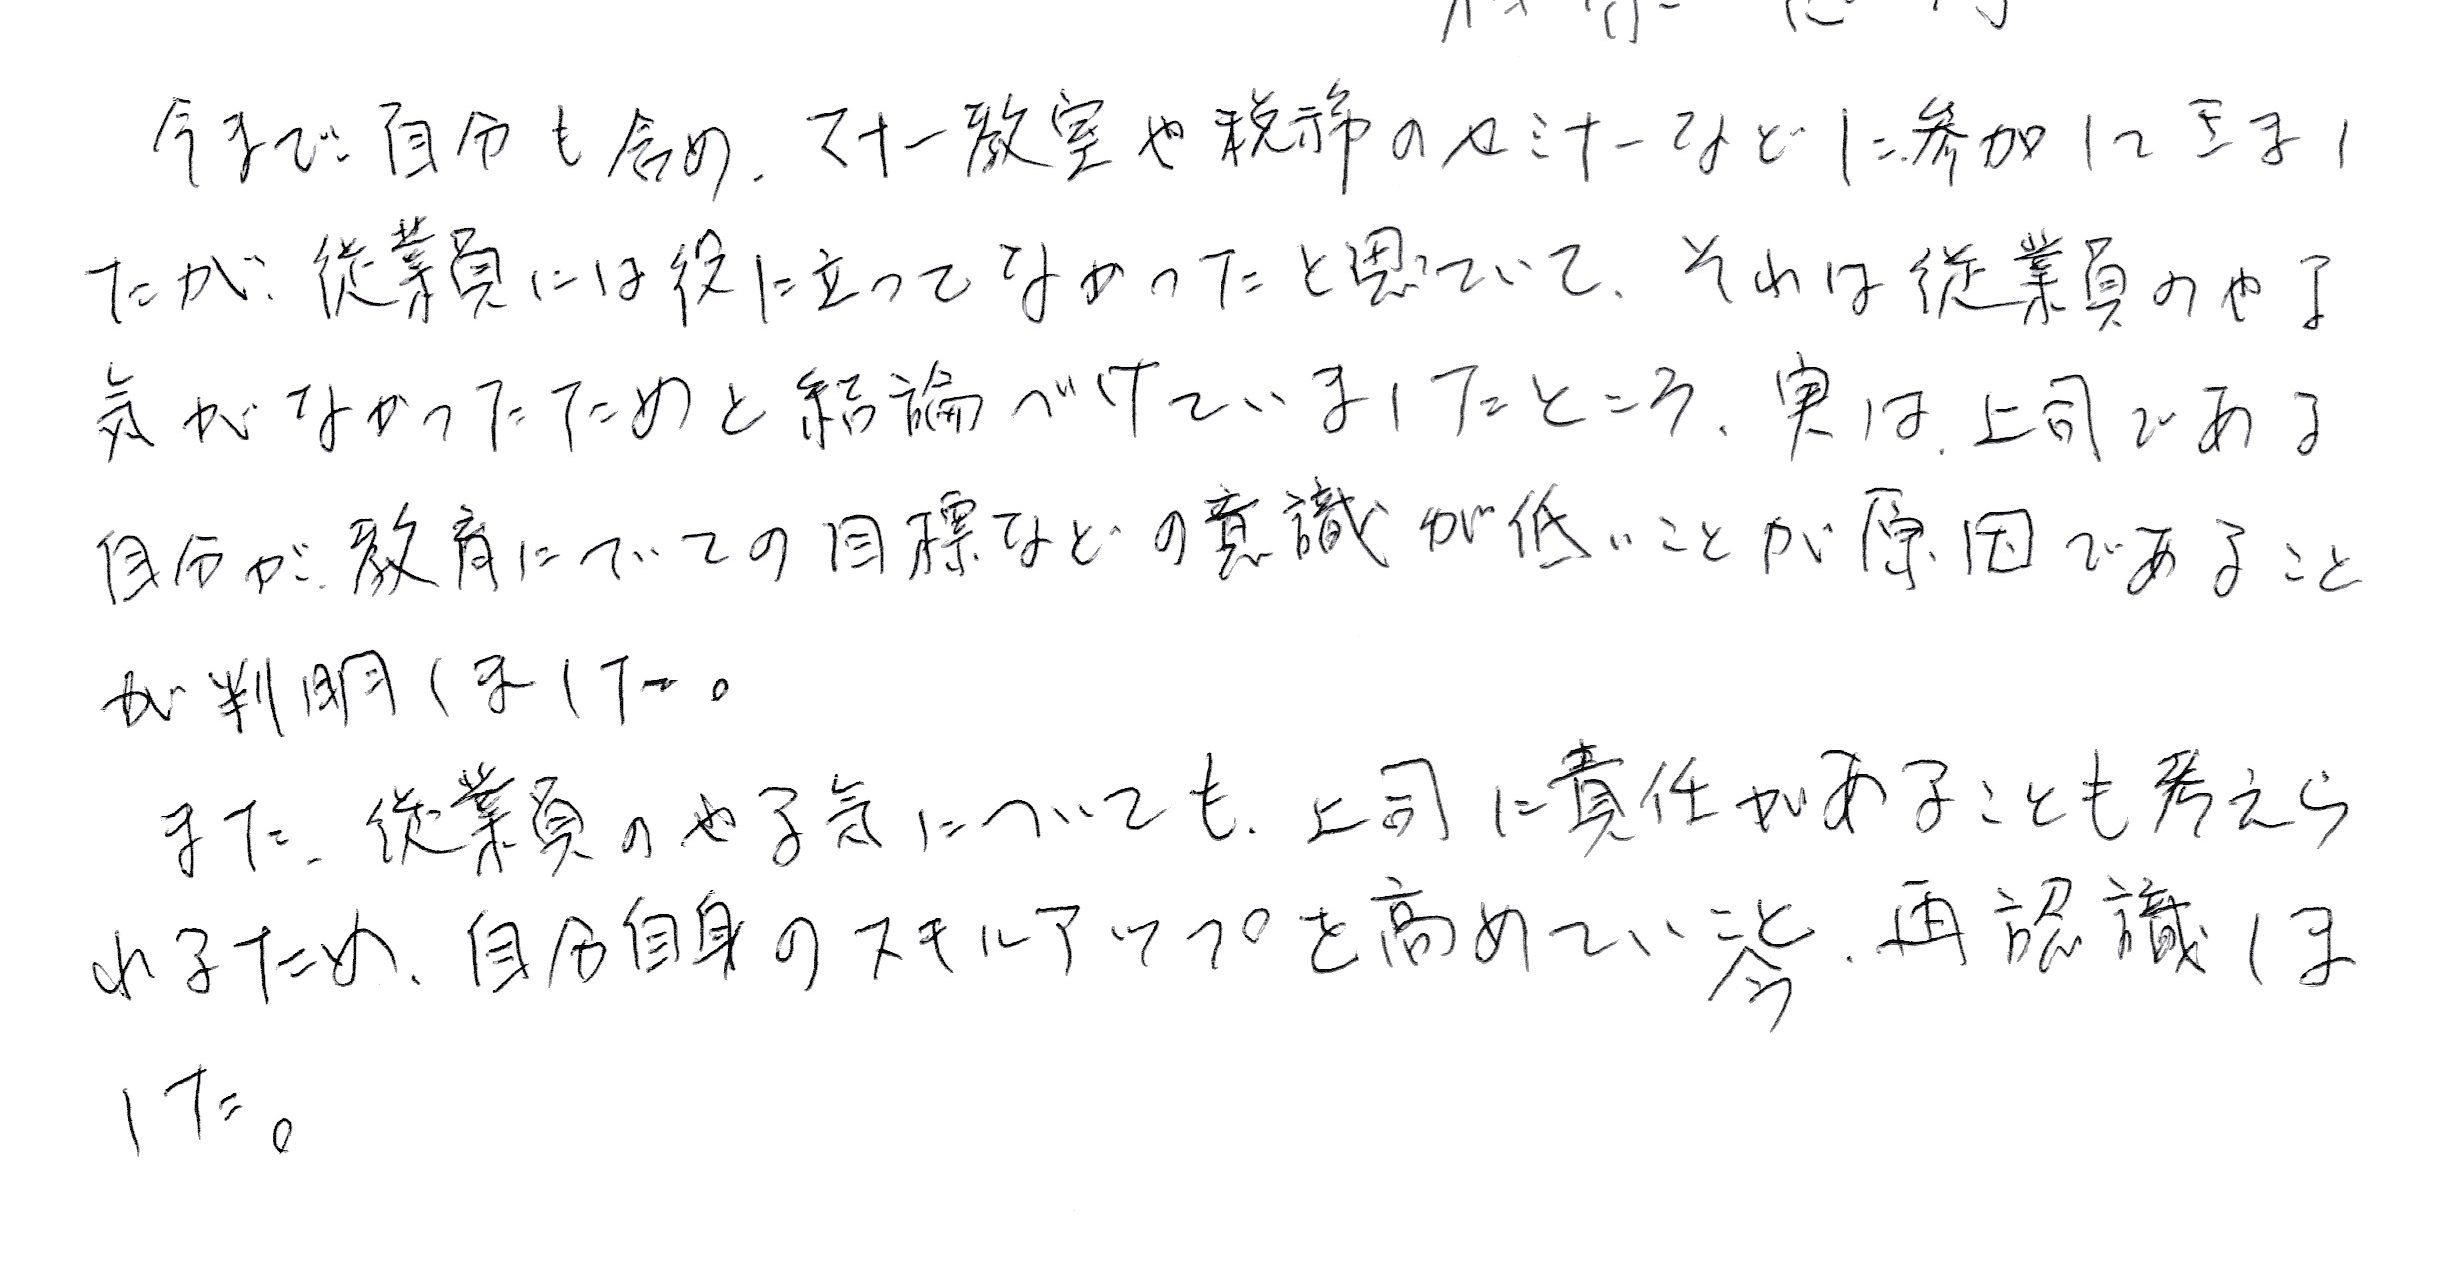 今まで自分も含め、マナー教室や税務のセミナーなどに参加してきまし
たが、従業員には役に立ってなかったと思っていて、それは従業員のやる
気がなかったためと結論づけていましたところ、実は、上司である
自分が、教育についての目標などの意識が低いことが原因であること
が判明しました。
また、従業員のやる気についても、上司に責任があることも考えら
れるため、自分自身のスキルアップを高めていこと今、再認識しま
した。